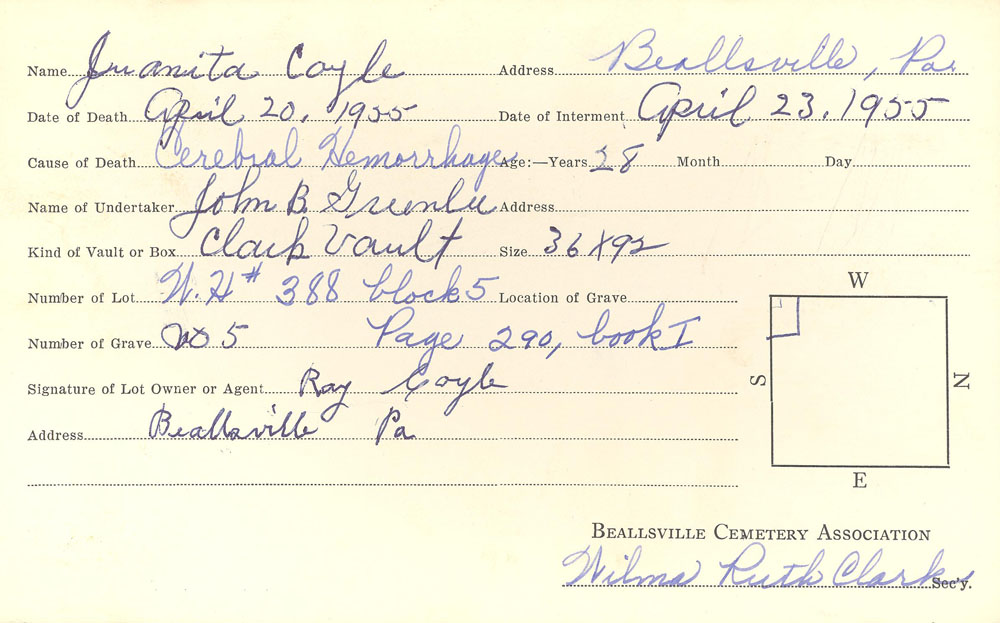 Name Juanita Coyle Address Beallsville, Pa.
Date of Death April 20, 1955 Date of Interment April 23, 1955
Cause of Death Cerebral Hemorrhage Age:—Years 28 Month Day
Name of Undertaker John B. Greenlee Address
Kind of Vault or Box Clark Vault Size 36X92
Number of Lot W.H# 388 block 5 Location of Grave
W
Number of Grave 5 Page 290, book I
S
N
Signature of Lot Owner or Agent Ray Coyle
Address Beallsville Pa
E
BEALLSVILLE CEMETERY ASSOCIATION
Wilma Ruth Clark Sec'y.